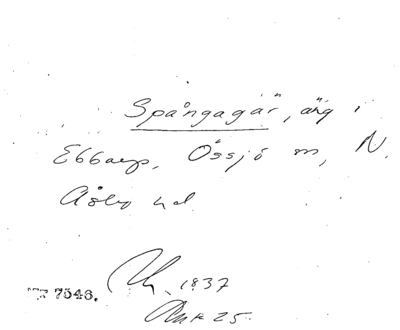 Spångagär, äng i
Ebbarp, Össjö sn, N.
Åsbo hd
7543. 1837
Akt 25.